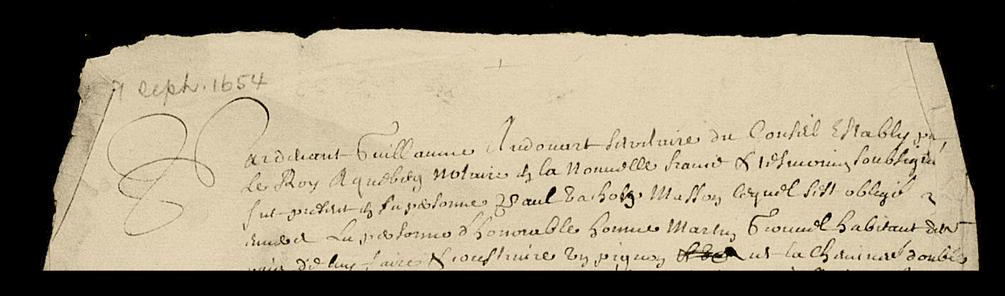 7 Seph. 1654
Pardevant Guillaume Audouart Secretaire du Conseil Estably par
Le Roy A quebecq Notaire en la Nouvelle france & tesmoins soubsignés
fut present en sa personne Paul Vachon Masson lequel s'est obligé
envers La personne d'honorable homme Martin Grouvel habitant de
de luy faire & construire un pignon la cheminée double